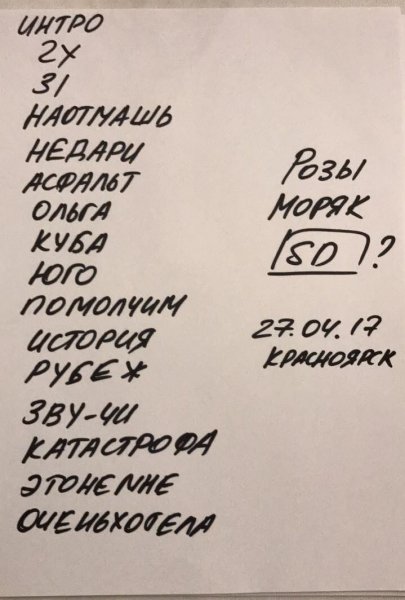 ИНТРО
2Х
31
НАОТМАШЬ
НЕДАРИ
АСФАЛЬТ
ОЛЬГА
КУБА
ЮГО
ПОМОЛЧИМ
ИСТОРИЯ
РУБЕЖ
ЗВУ-ЧИ
КАТАСТРОФА
ЭТОНЕМНЕ
ОЧЕНЬХОТЕЛА
РОЗЫ
МОРЯК
SD?
27.04.17
КРАСНОЯРСК